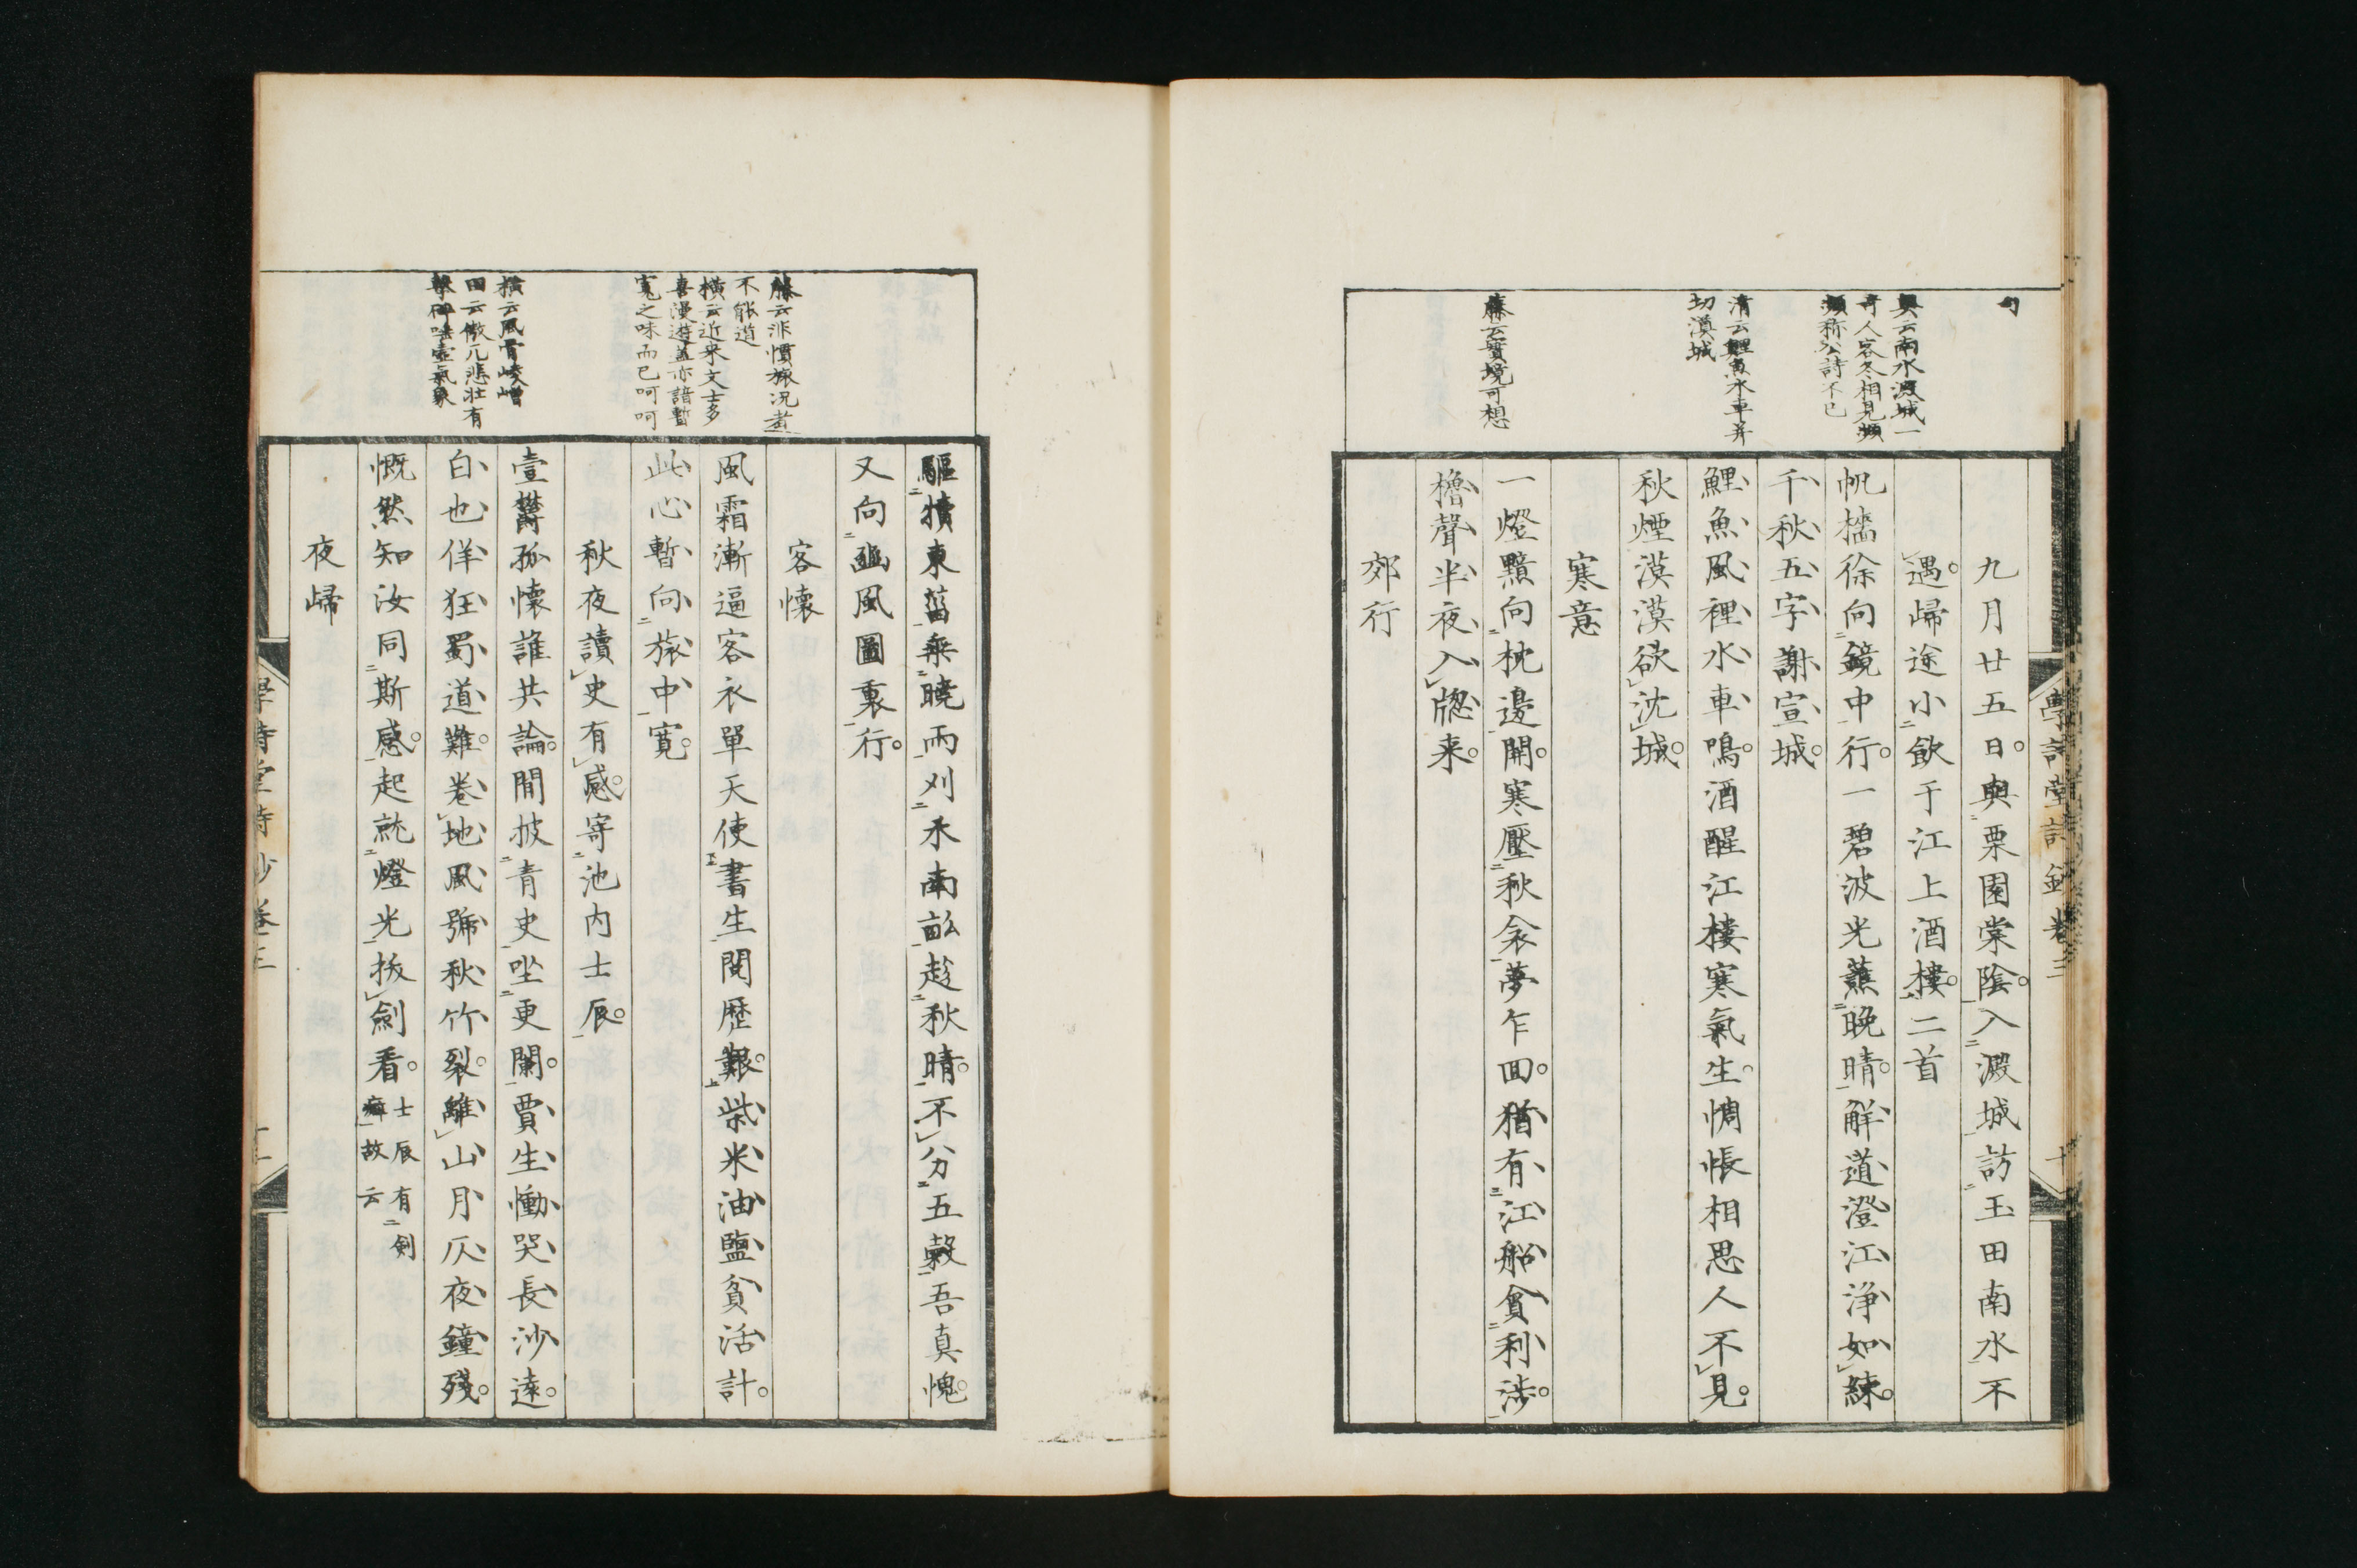 句
奥云南水澱城一
奇人客冬相見頻
頻称公詩不已
清云鯉魚水車并
切澱城
藤云實境可想
九月廿五日與栗園棠陰入澱城訪玉田南水不
遇歸途小飲于江上酒樓二首
帆檣徐向鏡中行一碧波光蘸晚晴解道澄江浄如練
千秋五字謝宣城
鯉魚風裡水車鳴酒醒江樓寒氣生惆悵相思人不見
秋煙漠漠欲沈城
寒意
一燈黯向枕邊開寒壓秋衾夢乍回猶有江船貪利渉
櫓聲半夜入牕来
郊行
學詩堂詩鈔卷三
藤云非慣旅况者
不能道
横云近来文士多
喜漫遊盖亦諳暫
寛之味而已呵呵
横云風骨崚嶒
田云傲兀悲壮有
撃碎唾壷氣象
驅犢東菑乗曉雨刈禾南畝趁秋晴不分五穀吾真愧
又向豳風圖裏行
客懷
風霜漸逼客衣單天使書生閲歴艱柴米油鹽貧活計
此心暫向旅中寛
秋夜讀史有感寄池内士辰
壹欝孤懷誰共論間披青史坐更闌賈生慟哭長沙遠
白也佯狂蜀道難卷地風號秋竹裂離山月仄夜鐘殘
慨然知汝同斯感起就燈光扳劍看 士辰有剣
癖故云
夜歸
學詩堂詩鈔卷三